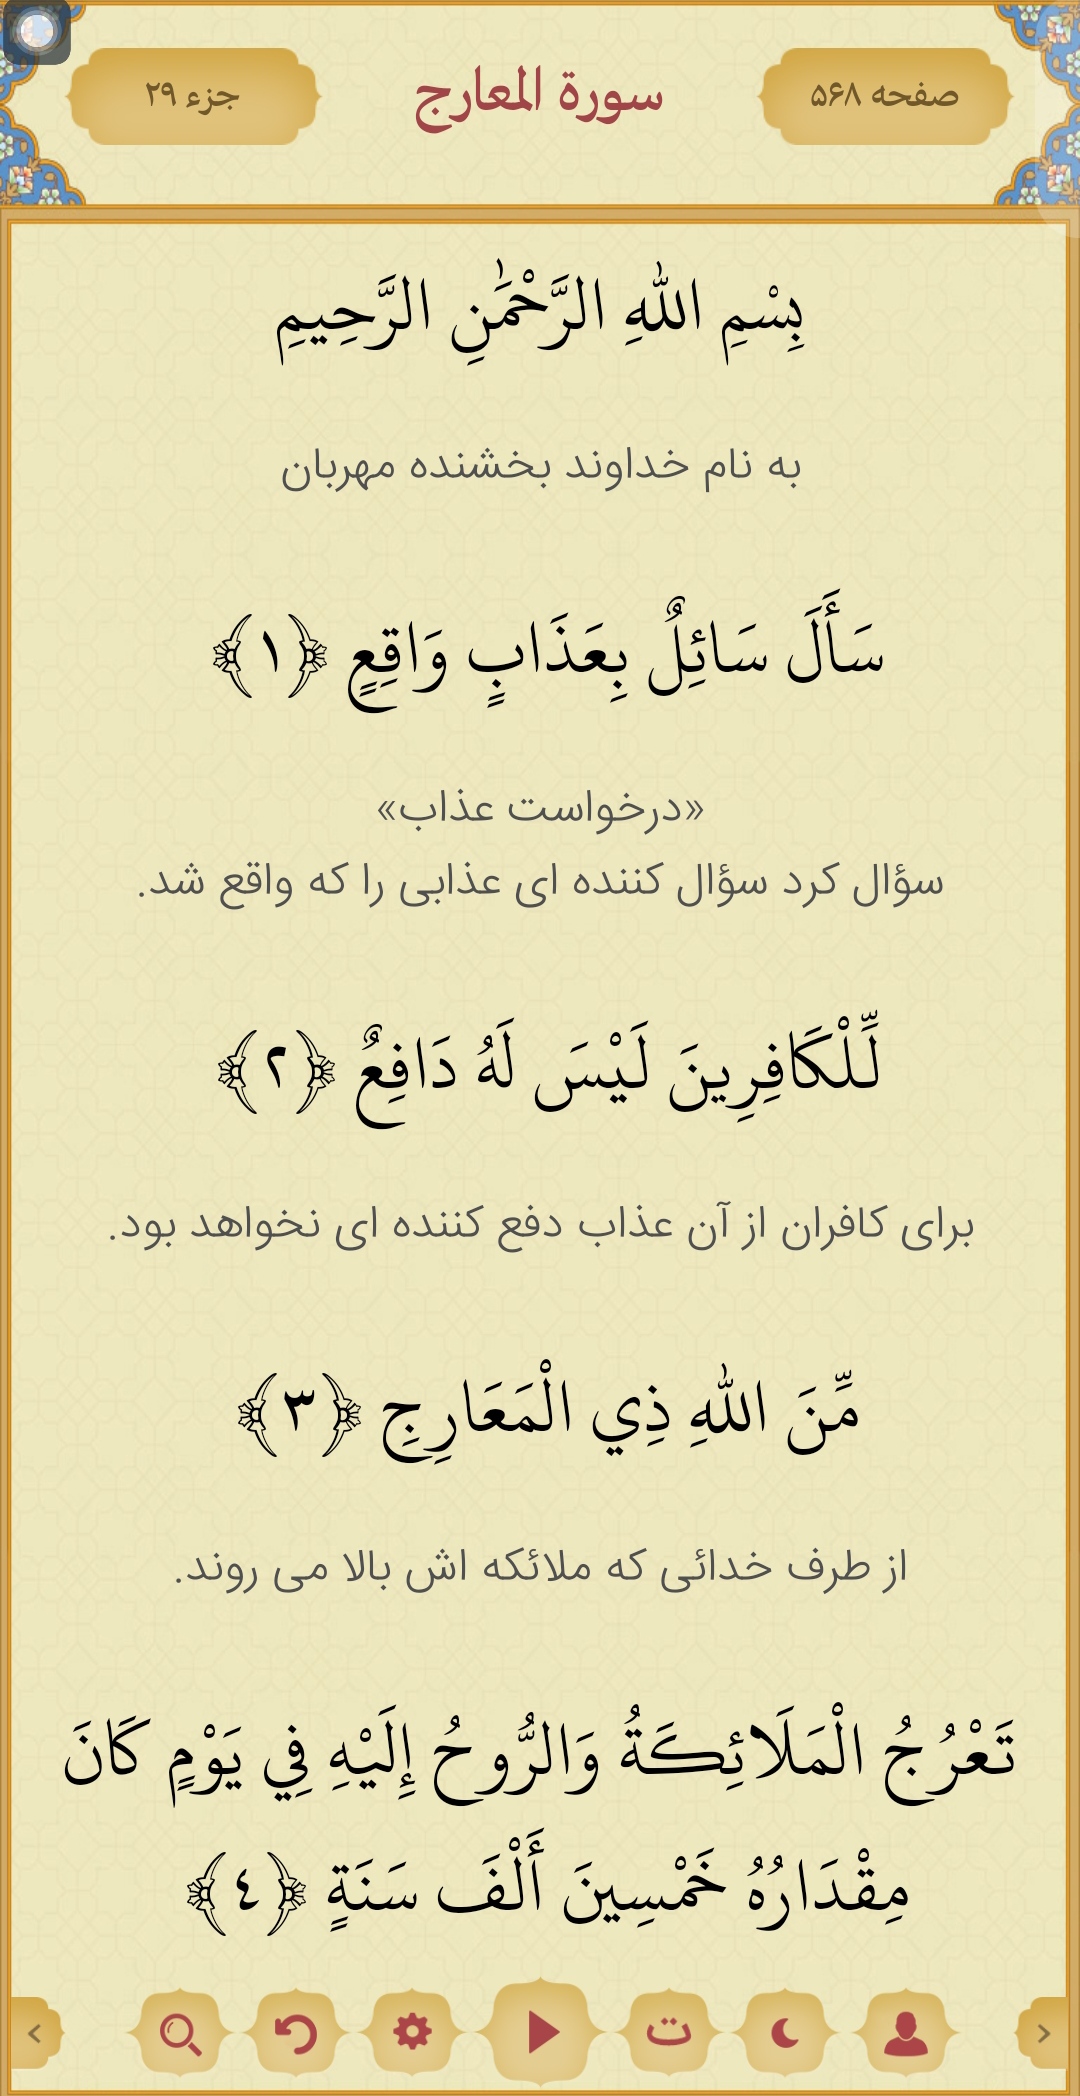 صفحه ۵۶۸
سورة المعارج
جزء ۲۹
بِسْمِ اللهِ الرَّحْمَٰنِ الرَّحِيمِ
به نام خداوند بخشنده مهربان
سَأَلَ سَائِلٌ بِعَذَابٍ وَاقِعٍ ﴿١﴾
«درخواست عذاب»
سؤال کرد سؤال کننده ای عذابی را که واقع شد.
لِّلْكَافِرِينَ لَيْسَ لَهُ دَافِعٌ ﴿٢﴾
برای کافران از آن عذاب دفع کننده ای نخواهد بود.
مِّنَ اللهِ ذِي الْمَعَارِجِ ﴿٣﴾
از طرف خدائی که ملائکه اش بالا می روند.
تَعْرُجُ الْمَلَائِكَةُ وَالرُّوحُ إِلَيْهِ فِي يَوْمٍ كَانَ
مِقْدَارُهُ خَمْسِينَ أَلْفَ سَنَةٍ ﴿٤﴾
ت